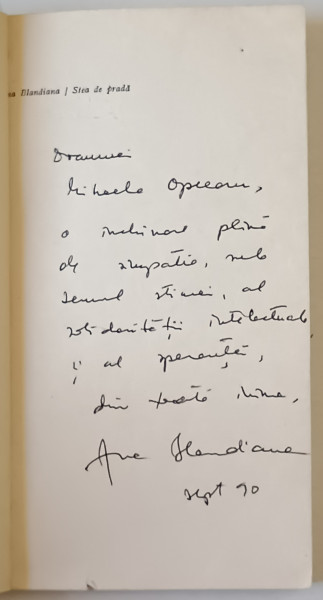 na Blandiana / Stea de pradă
Doamnei
Mihaela Oprean,
o închinare plină
de simpatie, sub
semnul stimei, al
solidarității intelectuale
și al speranței,
din toată inima,
Ana Blandiana
sept 90